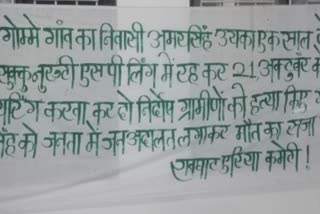 गोम्मे गांव का निवासी अमरसिंह उसका एक साल
एस पी लिंग में रह कर 21 अक्टुबंर
करवा कर दो निर्दोष ग्रामीणों की हत्या किए
को जनता में जनअदालत लगाकर मौत का सजा
एरिया कमेटी!